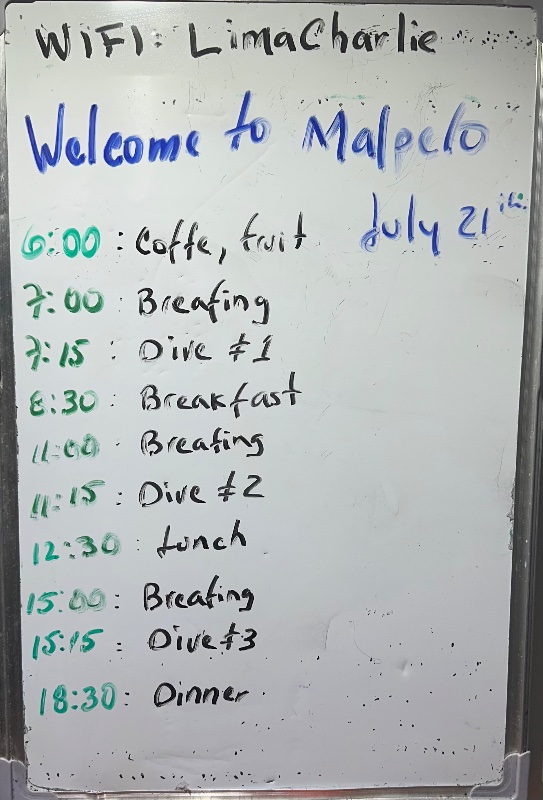 WIFI: LimaCharlie
Welcome to Malpelo
July 21th.
6:00 : Coffe, fruit
7:00 : Breafing
7:15 : Dive #1
8:30 : Breakfast
11:00 : Breafing
11:15 : Dive #2
12:30 : Lunch
15:00 : Breafing
15:15 : Dive #3
18:30 : Dinner